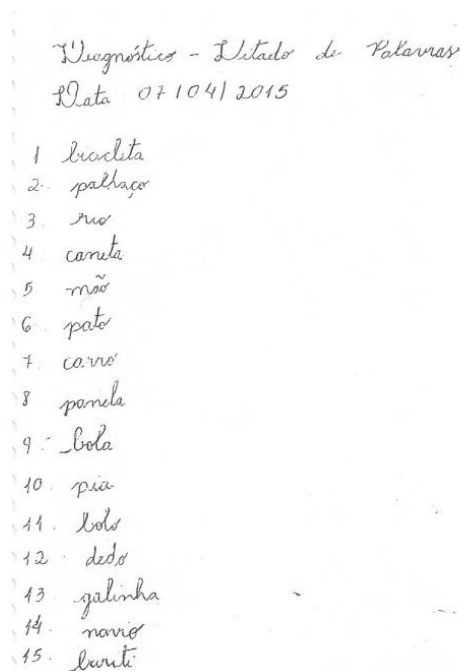 Diagnóstico - Ditado de Palavras
Data 07/04/2015
1 bicicleta
2. palhaço
3. rio
4 caneta
5 mão
6. pato
7. carro
8 panela
9. bola
10. pia
11. bolo
12. dedo
13 galinha
14. navio
15. buriti